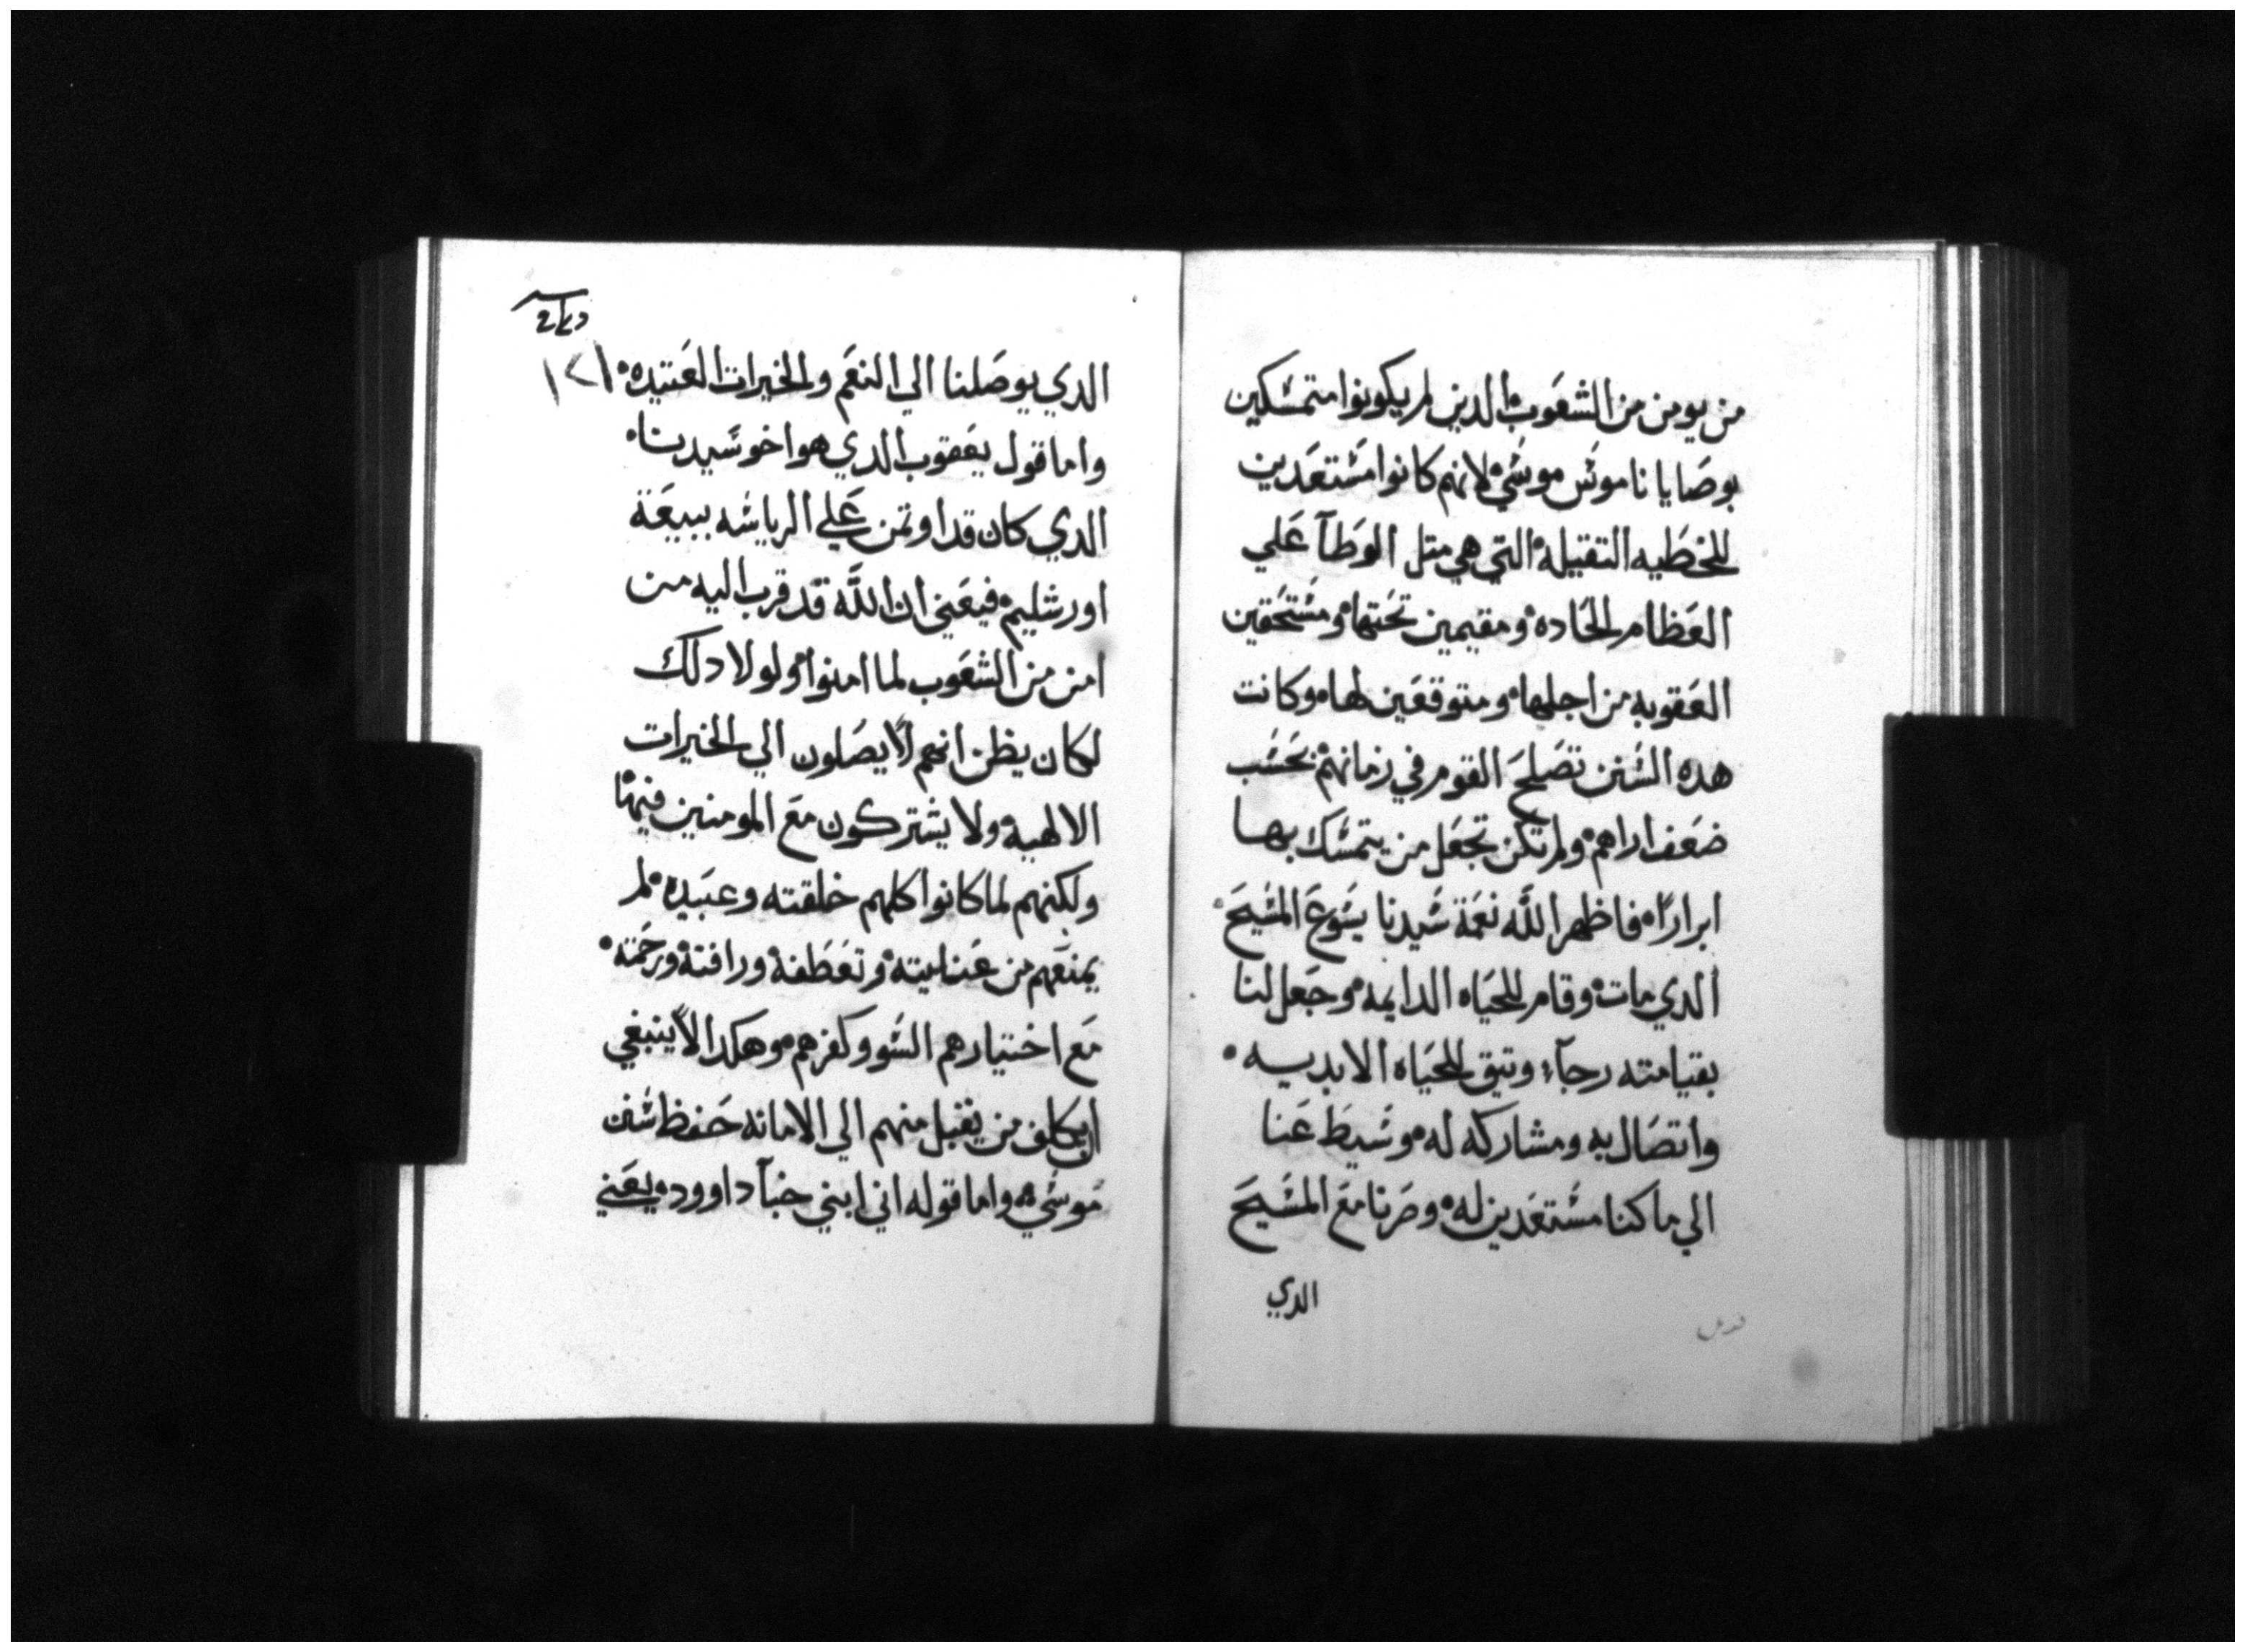 من يومن من الشعوب الدين لم يكونوا متمسكين
بوصايا ناموس موسي لانهم كانوا مستعدين
للخطيه التقيله التي هي متل الوطآ علي
العظام الحاده ومقيمين تحتها ومستحقين
العقوبه من اجلها ومتوقعين لها وكانت
هده السنن تصلح القوم في زمانهم بحسب
ضعف اراهم ولم تكن تجعل من يتمسك بها
ابرارًا فاظهر اللّه نعمة سيدنا يسوع المسيح
الدي مات وقام للحياه الدايمه وجعل لنا
بقيامته رجآء وتيق للحياه الابديه
واتصال به ومشاركه له وسيط عنا
الي ما كنا مستعدين له وصرنا مع المسيح
الدي
الدي يوصلنا الي النعم والخيرات العتيده
١٢١
واما قول يعقوب الدي هو اخو سيدنا
الدي كان قد اوتمن علي الرياسه ببيعة
اورشليم فيعني ان اللّه قد قرب اليه من
امن من الشعوب لما امنوا ولولا دلك
لكان يظن انهم لا يصلون الي الخيرات
الالهيه ولا يشتركون مع المومنين فيها
ولكنهم لما كانوا كلهم خلقته وعبيده لم
يمنعهم من عنايته وتعطفه ورافته ورحمته
مع اختيارهم السو وكفرهم وهكدا لا ينبغي
ان يكلف من يقبل منهم الي الامانه حفظ سنن
موسي واما قوله اني ابني خبآ داوود يعني